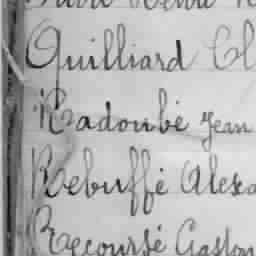 Quilliard Cl
Radoubé Jean
Rebuffé Alexa
Recoursé Gaston